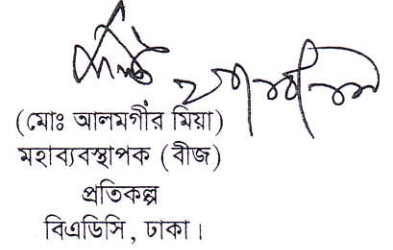 (মোঃ আলমগীর মিয়া)
মহাব্যবস্থাপক (বীজ)
প্রতিকল্প
বিএডিসি, ঢাকা।